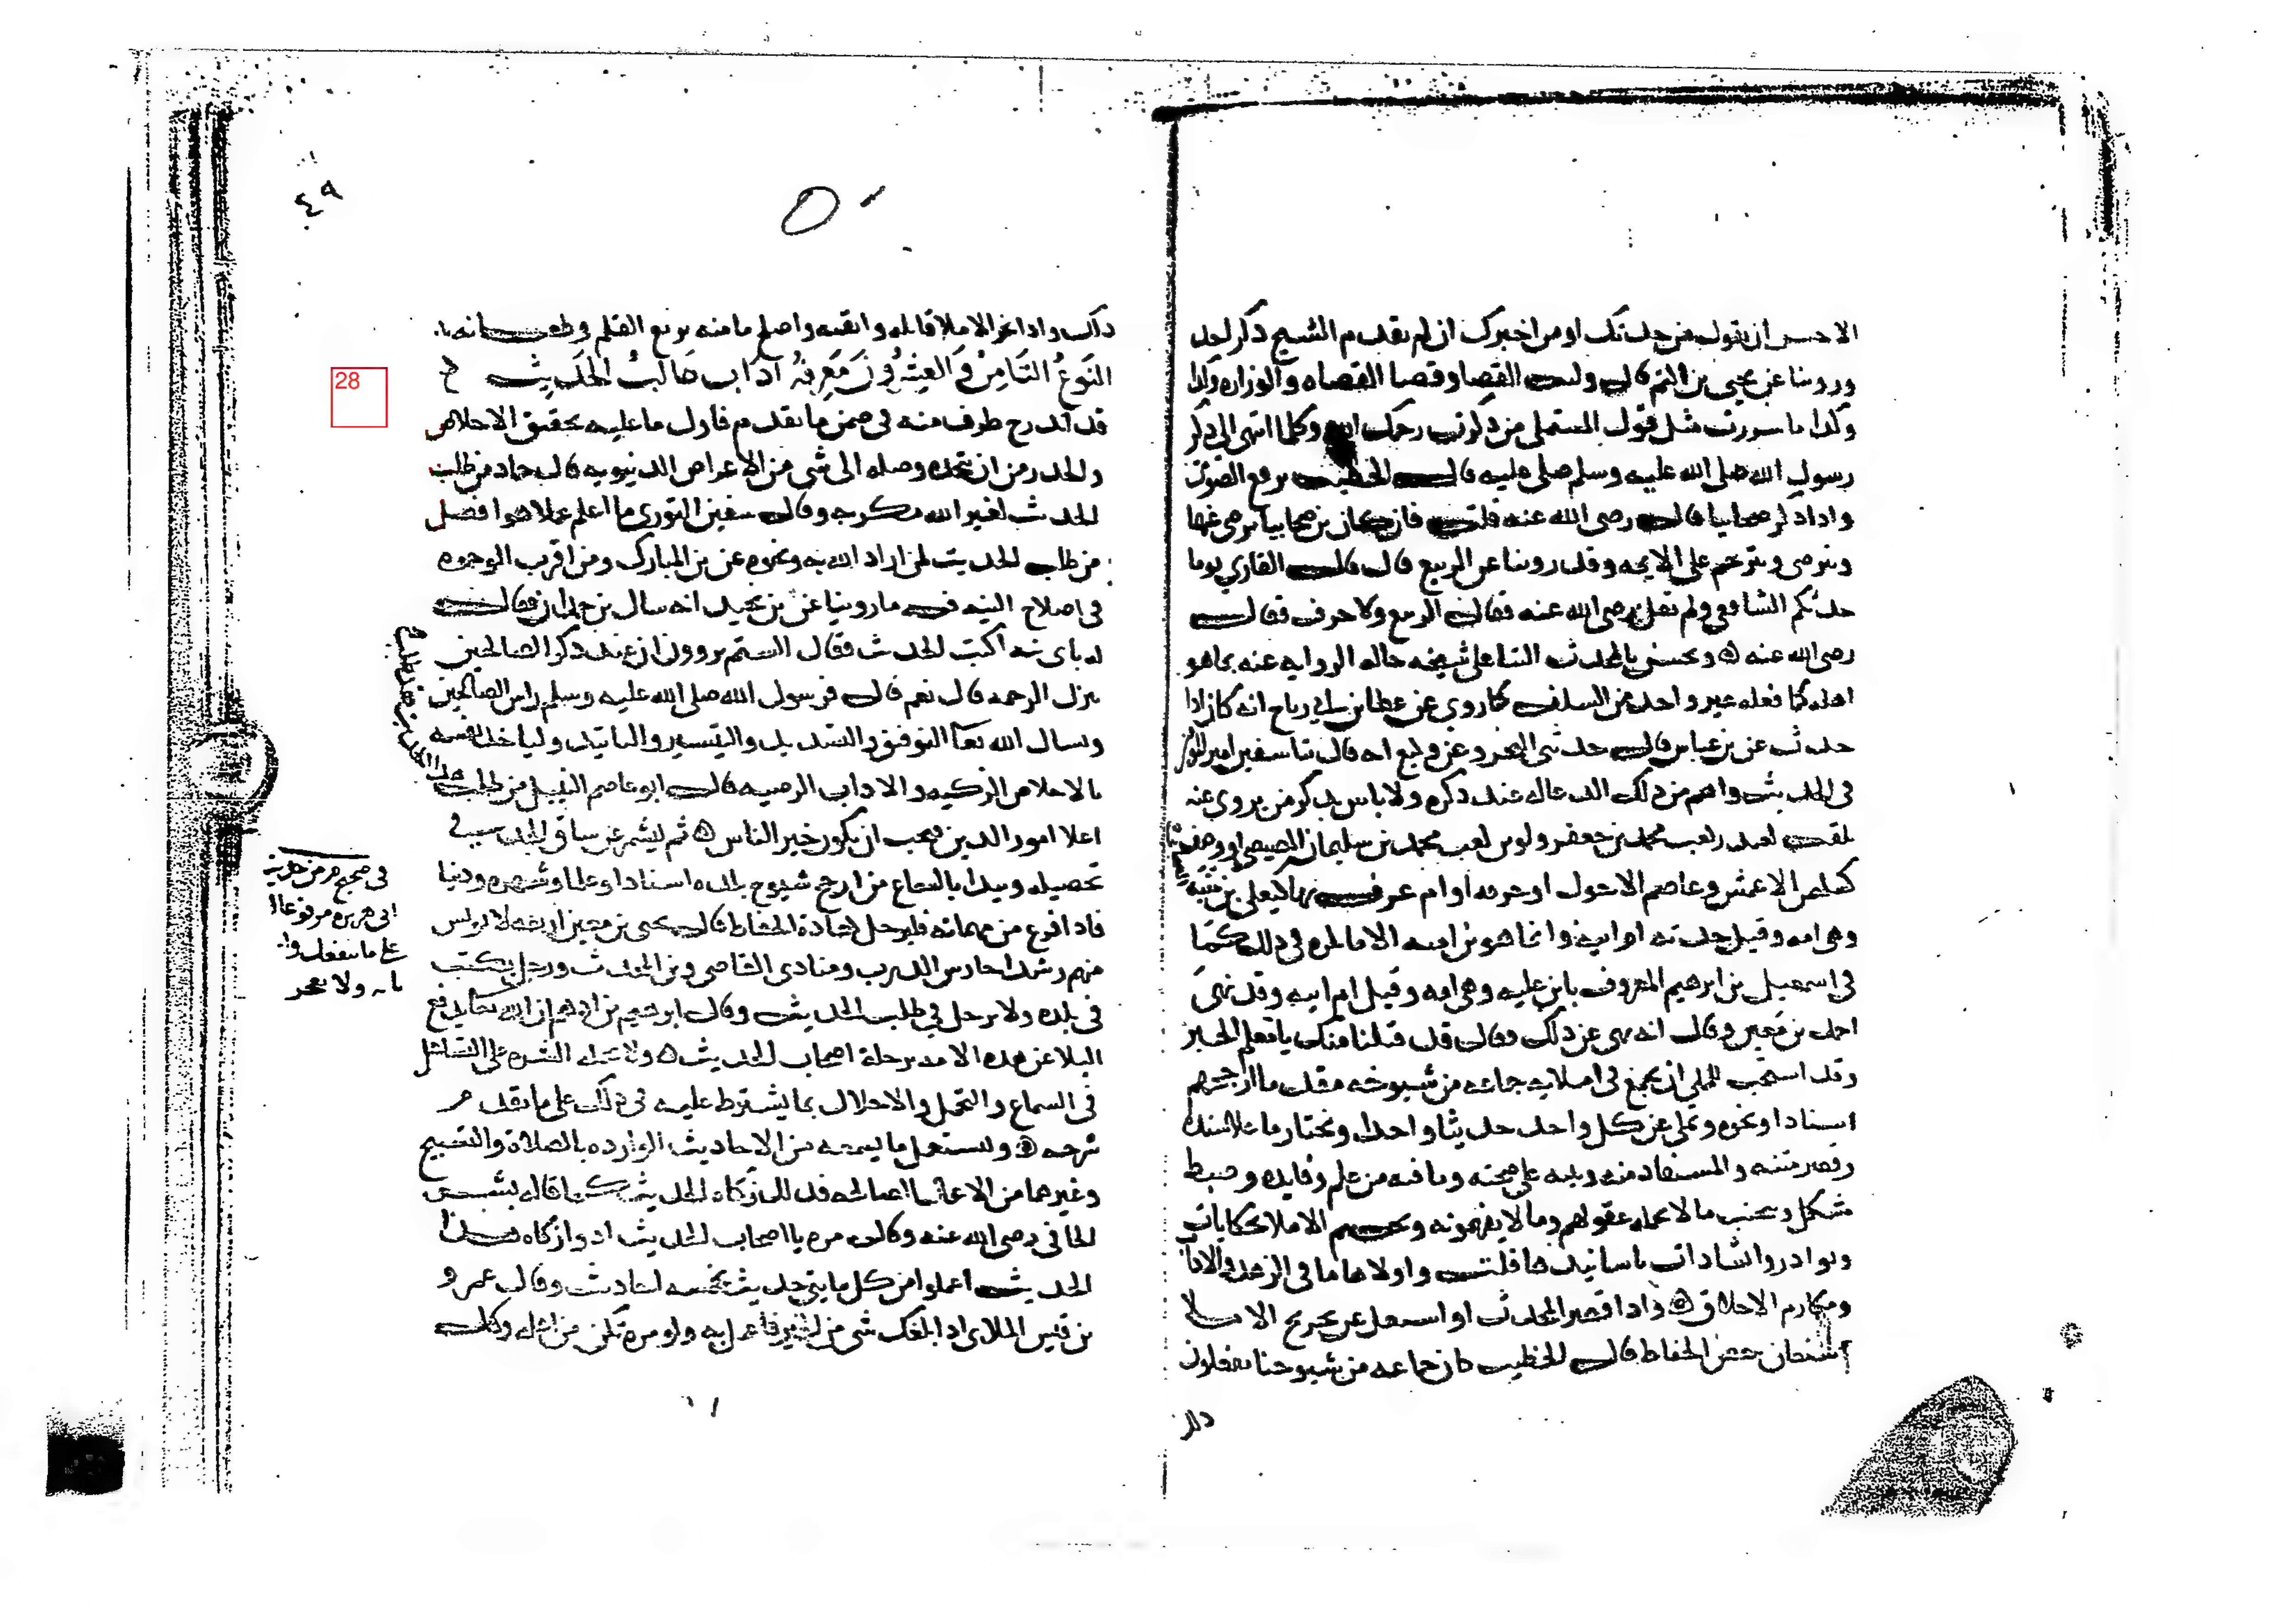 الاحسن ان يقول من حدثك او من اخبرك ان لم يقدم الشيخ ذكر احد
وروينا عن يحيى بن اكثم قال وليت القضا وقضا القضاه والوزاره وكذا
وكذا ما سررت مثل قول المستملي من ذكرت رحمك الله وكلما انتهى الى ذكر
رسول الله صلى الله عليه وسلم صلى عليه قال الخطيب يرفع الصوت
واذا ذكر صحابيا قال رضى الله عنه قلت فان كان بن صحابيا رضى عنهما
ويترضى ويترحم على الايمه وقد روينا عن الربيع قال قال القاري يوما
حدثكم الشافعي ولم يقل رضى الله عنه فقال الربيع ولا حرف فقال
رضى الله عنه ه ويحسن بالمحدث الثنا على شيخه حاله الروايه عنه بما هو
اهله كما فعله غير واحد من السلف كما روي عن عطا بن ابي رباح انه كان اذا
حدث عن بن عباس قال حدثني البحر وعن وكيع انه قال ثنا سفين امير المومنين
في الحديث واهم من ذلك الدعا له عند ذكره ولا باس بذكر من يروي عنه
بلقب كغندر لقب محمد بن جعفر ولوين لقب محمد بن سليمان المصيصي او وصف
كسليمن الاعمش وعاصم الاحول او حرفه او ام عرف بها كيعلى بن منيه
وهي امه وقيل جدته ام ابيه وانما هو بن اميه
في اسمعيل بن ابرهيم المعروف بابن عليه وهي امه وقيل ام ابيه وقد نهى
احمد بن معين وقال انه نهي عن ذلك وقال قد قبلنا منك يا معلم الخير
وقد استحب للمملي ان يجمع في املايه جماعه من شيوخه مقدما ارجحهم
اسنادا ونحوه ويملي عن كل واحد حديثا واحدا ويختار ما علا سنده
وقصر متنه والمستفاد منه وينبه على صحته وما فيه من علم وفايده وضبط
مشكل ويجتنب ما لا تحمله عقولهم وما لا يفهمونه ويختم الاملا بحكايات
ونوادر وانشادات باسانيدها قلت واولاها ما في الزهد والاداب
ومكارم الاخلاق ه واذا قصر المحدث او اشتغل عن تخريج الاملا
استعان ببعض الحفاظ قال الخطيب كان جماعه من شيوخنا يفعلون
ذلك
٤٩
ذلك واذا نجز الاملا قابله واتقنه واصلح ما منه بزيغ القلم وطغيانه
النَوعُ الثَامِنُ وَالعِشرُونَ مَعرِفَةُ ادَاب طَالبُ الحَديث
قد اندرج طرف منه في ضمن ما تقدم فاول ما عليه تحقيق الاخلاص
والحذر من ان يتخذه وصله الى شي من الاعراض الدنيويه قال حماد من طلب
الحديث لغير الله مكر به وقال سفين الثوري ما اعلم عملا هو افضل
من طلب الحديث لمن اراد الله به ونحوه عن بن المبارك ومن اقرب الوجوه
في اصلاح النيه فيه ما روينا عن بن نجيد انه سال بن حمدان فقال
له باى نيه اكتب الحديث فقال الستم تروون ان عند ذكر الصالحين
تنزل الرحمه قال نعم قال فرسول الله صلى الله عليه وسلم راس الصالحين
وليسال الله تعا التوفيق والتسديد والتيسير والتاييد ولياخذ نفسه
بالاخلاق الزكيه والاداب الرضيه قال ابو عاصم النبيل من طلب
اعلا امور الدين فيجب ان يكون خير الناس ه ثم ليشمر عن ساق الجد في
تحصيله ويبدا بالسماع من ارجح شيوخ بلده اسنادا وعلما وشهره ودينا
فاذا افرغ من مهماته فليرحل لعادة الحفاظ قال يحيى بن معين اربعه لا تونس
منهم رشدا حارس الدرب ومنادى القاضي وبن المحدث ورجل يكتب
في بلده ولا يرحل في طلب الحديث وقال ابرهيم بن ادهم ان الله تعالى يدفع
البلا عن هذه الامه برحلة اصحاب الحديث ه ولا تحمله الشره على التساهل
في السماع والتحمل والاخلال بما يشترط عليه في ذلك على ما تقدم
شرحه ه وليستعمل ما يسمعه من الاحاديث الوارده بالصلاة والتسبيح
وغيرهما من الاعمال الصالحه فذلك زكاه الحديث كما قاله بشر
الحافي رضى الله عنه وقال مره يا اصحاب الحديث ادوا زكاه هذا
الحديث اعملوا من كل مايتي حديث بخمسه احاديث وقال عمرو
بن قيس الملاى اذا بلغك شى من الخير فاعمل به ولو مرة تكن من اهله وقال
في صحيح م من حديث
ابى هريره مرفوعا ا
على ما ينفعك وا
بالله ولا تعجز
28